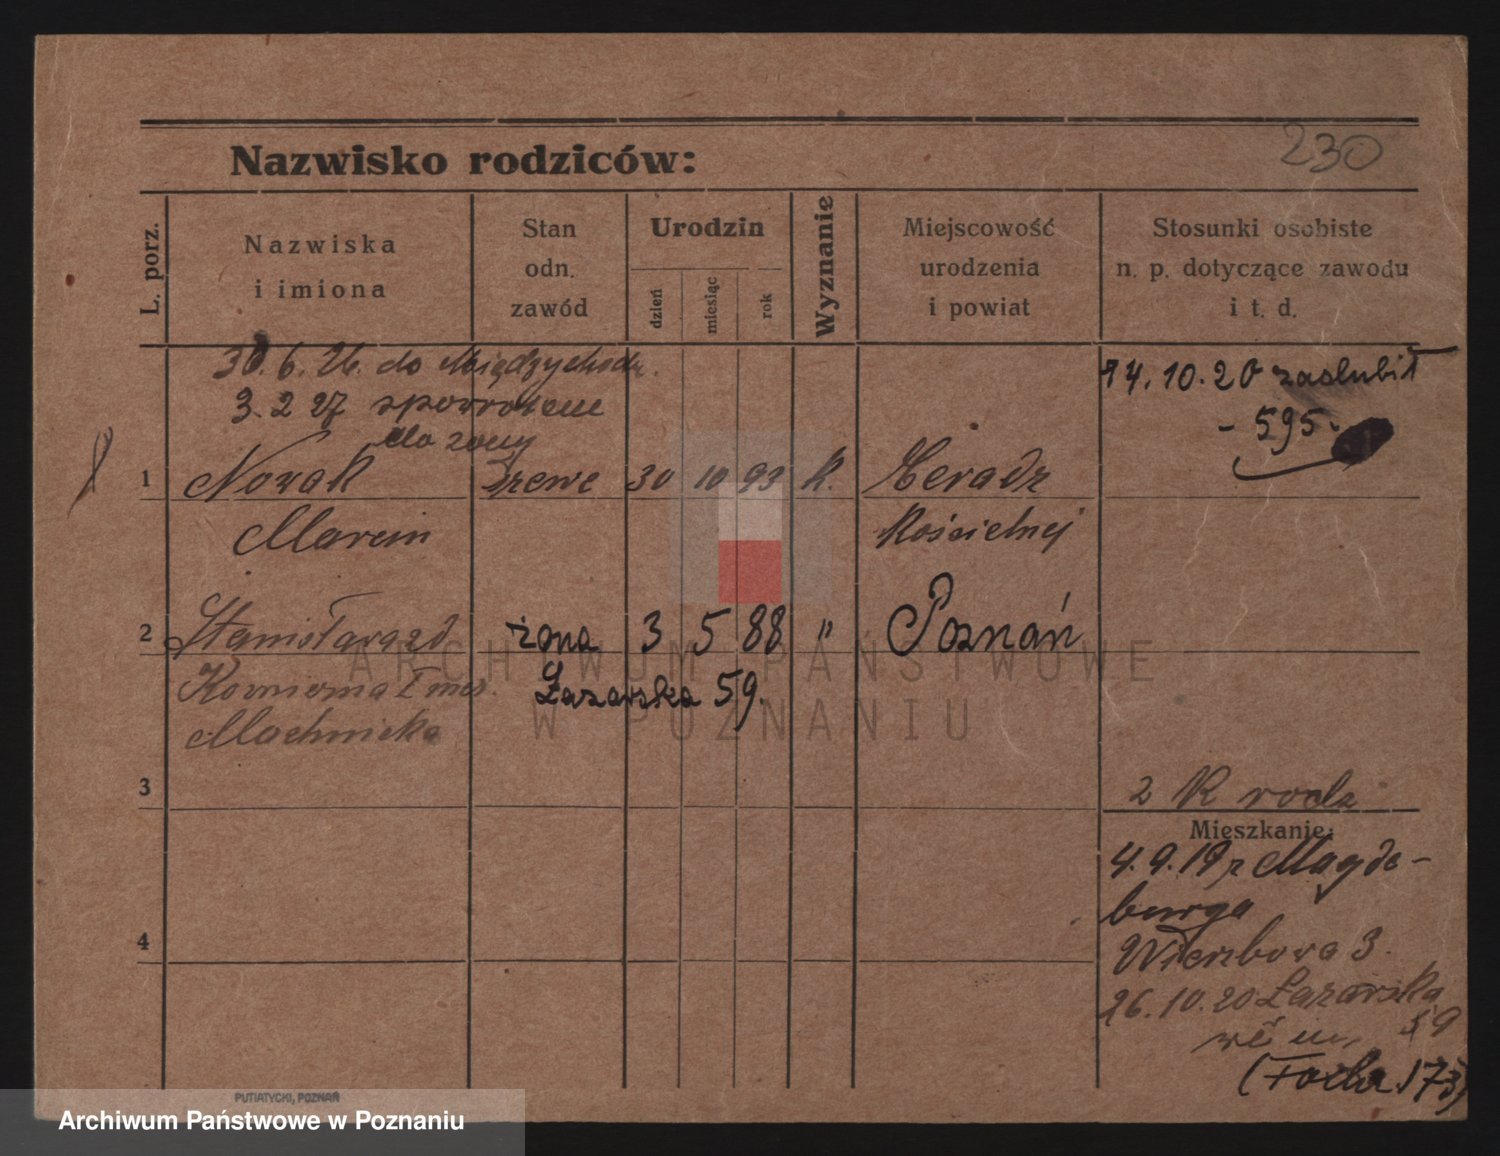 230
Nazwisko rodziców:
L. porz.
Nazwiska
i imiona
Stan
odn.
zawód
Urodzin
dzień
miesiąc
rok
Wyznanie
Miejscowość
urodzenia
i powiat
Stosunki osobiste
n. p. dotyczące zawodu
i t. d.
30.6.26. do Międzychodu.
3.2 27 spowrotem
do żony
14.10.20 zaślubił
- 595.
1 Nowak 30 10 93 k.
Kościelnej
Marcin
2 żona 3 5 88 " Poznań
Łazarska 59.
Machnicka
3
2 K rodz
Mieszkanie:
4.9.19 z Magde-
burga
Wierzbowa 3.
4
26.10.20 Łazarska
59
(Focha 173)
PUTIATYCKI, POZNAŃ
ARCHIWUM PAŃSTWOWE
W POZNANIU
Archiwum Państwowe w Poznaniu